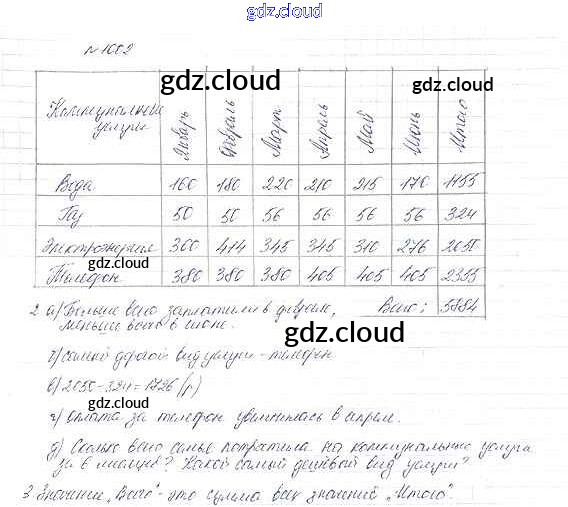 gdz.cloud
№ 1002
gdz.cloud
Коммунальные услуги Январь Февраль Март Апрель Май Июнь Итого
Вода 160 180 220 210 215 170 1155
Газ 50 50 56 56 56 56 324
gdz.cloud
Электроэнергия 300 414 345 345 310 276 2050
gdz.cloud
Телефон 380 380 380 405 405 405 2355
2 а) Больше всего заплатили в феврале, Всего: 5884
меньше всего в июне.
gdz.cloud
б) самый дорогой вид услуги - телефон
в) 2050-324=1726 (р)
gdz.cloud
г) оплата за телефон увеличилась в апреле.
gdz.cloud
д) Сколько всего семья потратила на коммунальные услуги
за 6 месяцев? Какой самый дешёвый вид услуги?
3 Значение „Всего" - это сумма всех значений „Итого".
gdz.cloud